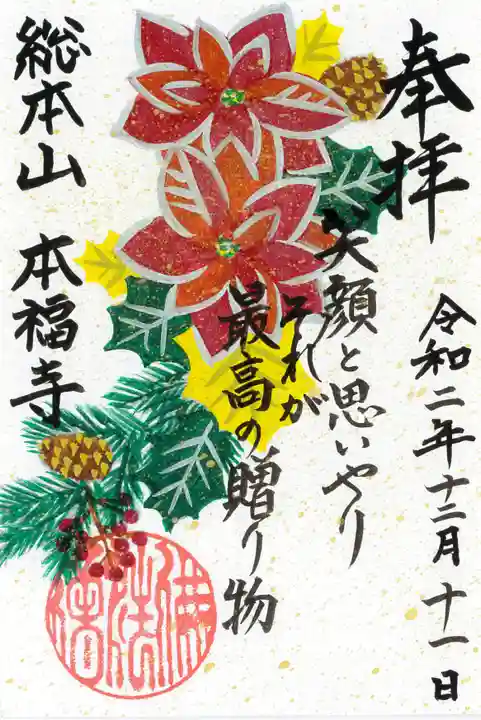 奉拝
令和二年十二月十一日
笑顔と思いやり
それが
最高の贈り物
総本山 本福寺
佛法僧